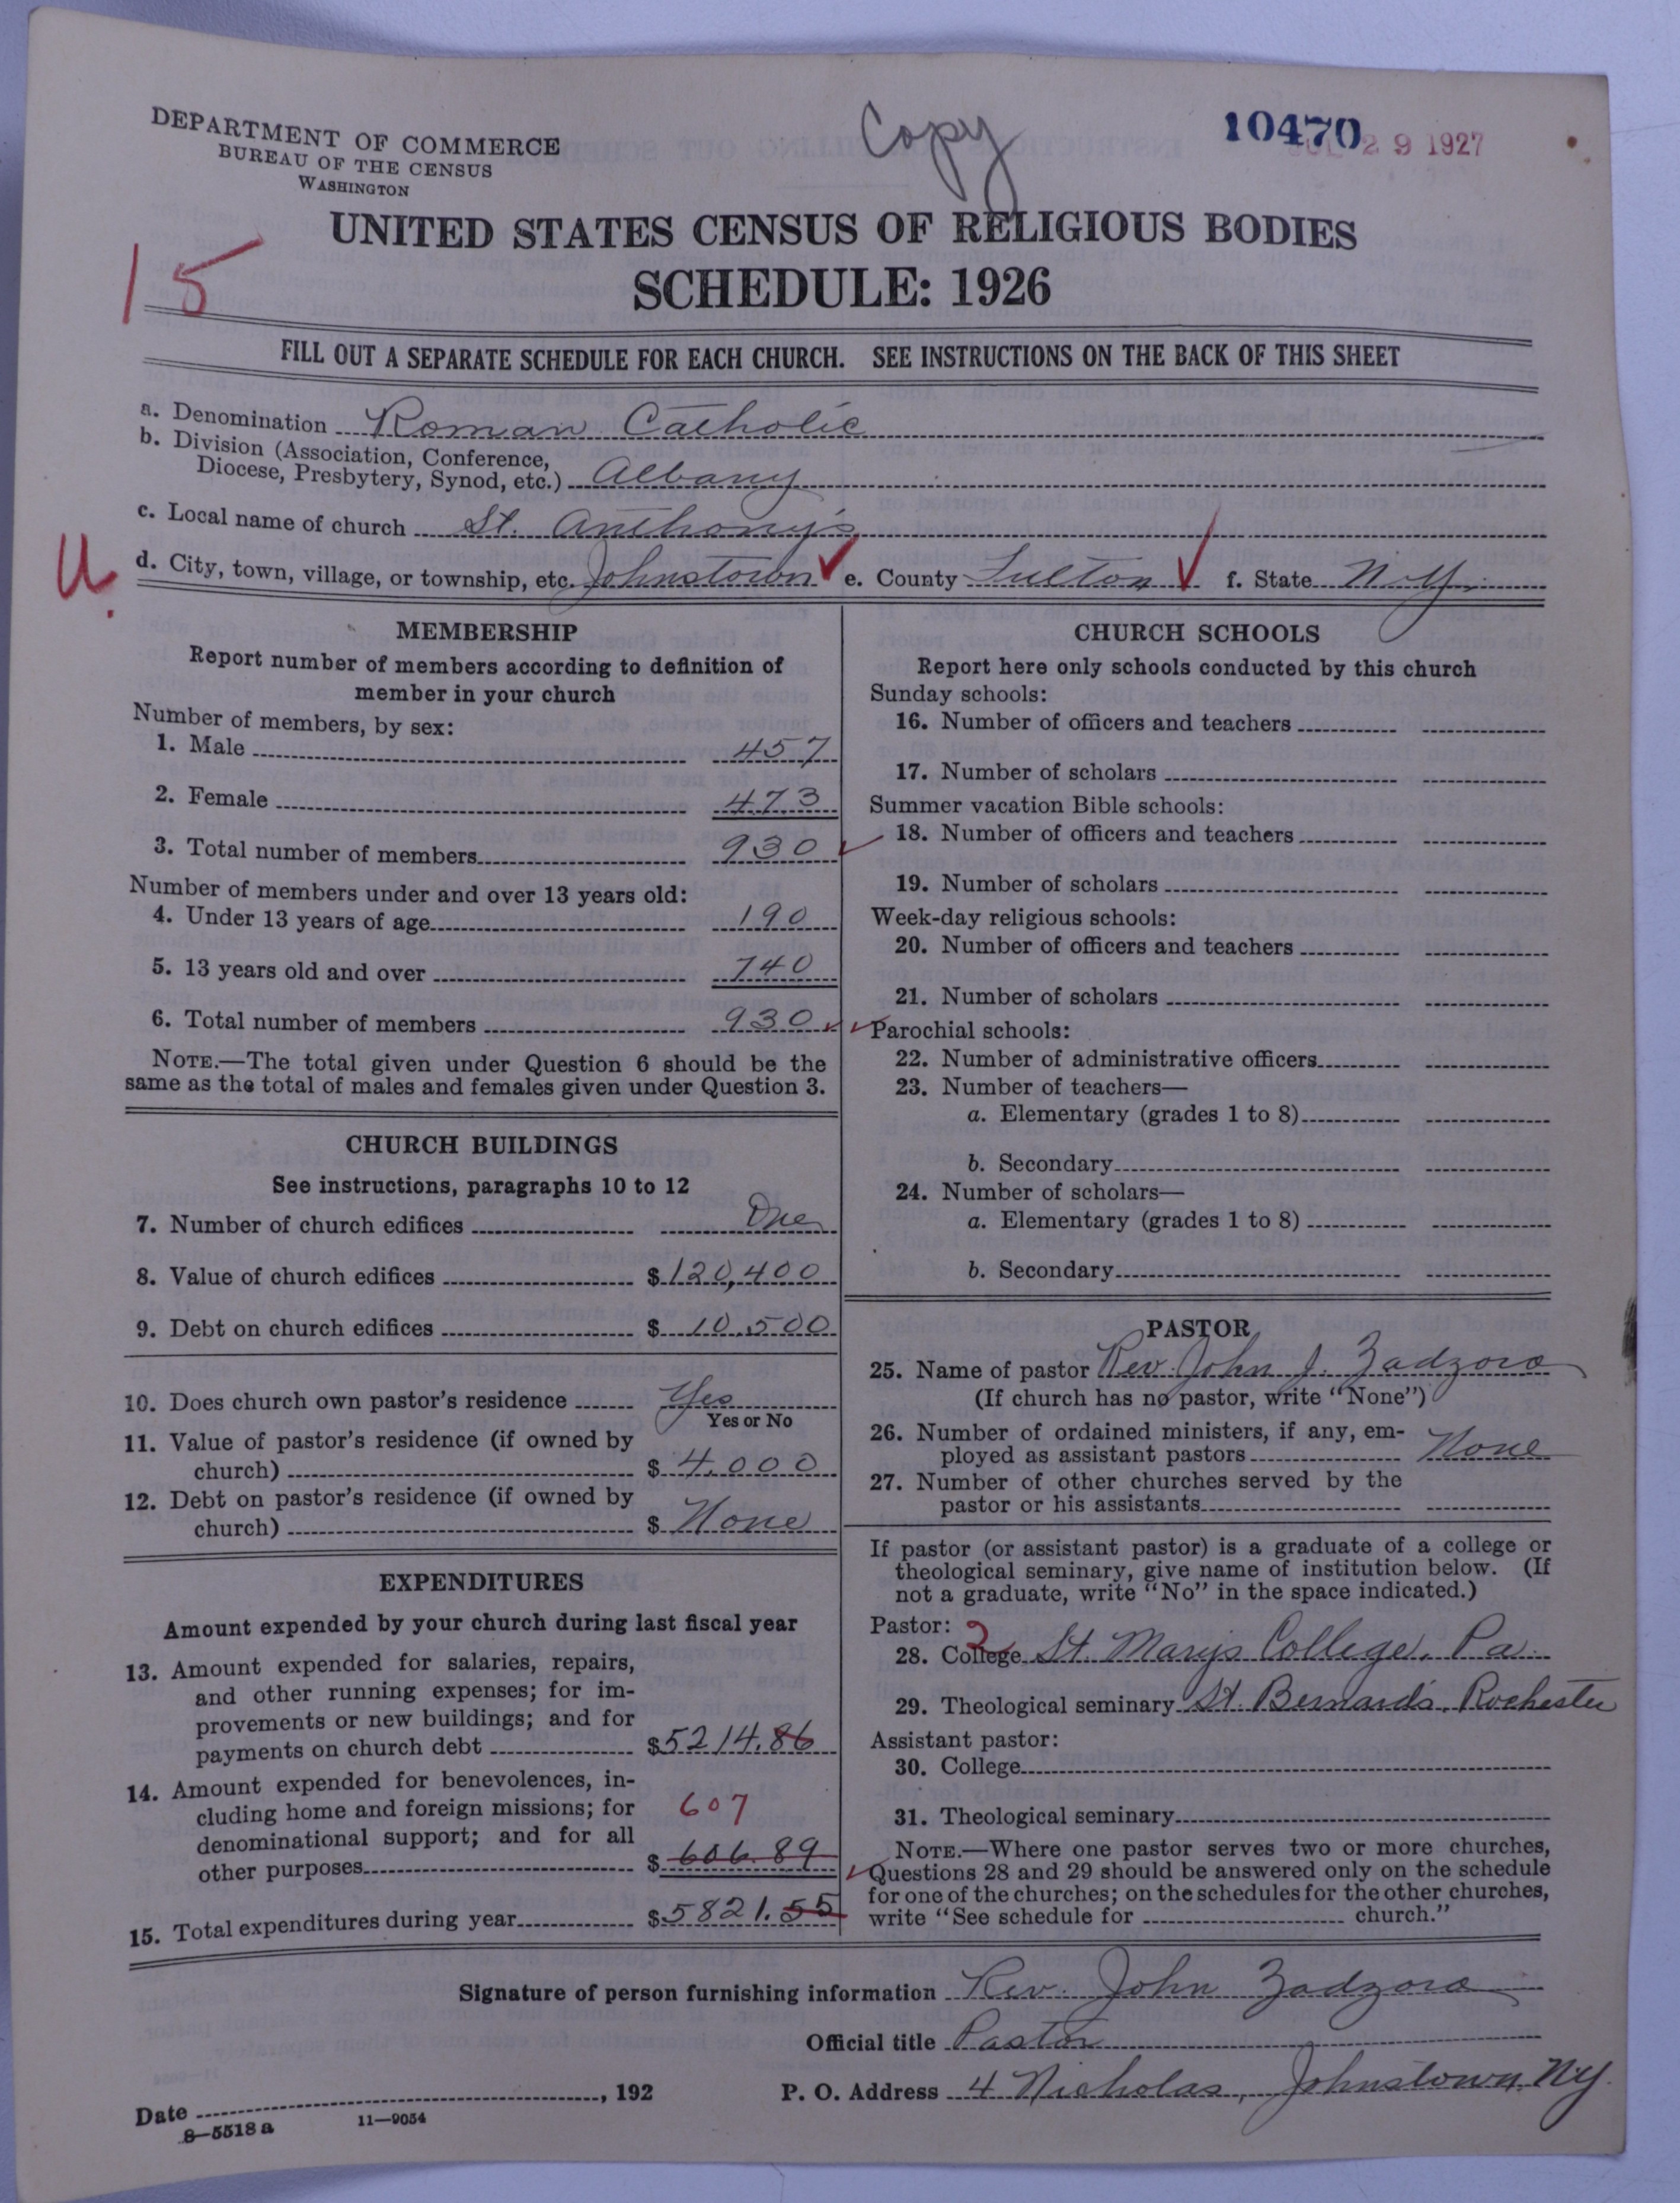 DEPARTMENT OF COMMERCE
BUREAU OF THE CENSUS
WASHINGTON
Copy
10470
29 1927
UNITED STATES CENSUS OF RELIGIOUS BODIES
SCHEDULE: 1926
15
FILL OUT A SEPARATE SCHEDULE FOR EACH CHURCH. SEE INSTRUCTIONS ON THE BACK OF THIS SHEET
a. Denomination Roman Catholic
b. Division (Association, Conference,
Diocese, Presbytery, Synod, etc.) Albany
c. Local name of church St. Anthony's
U.
d. City, town, village, or township, etc. Johnstown e. County Fulton f. State N.Y.
MEMBERSHIP
Report number of members according to definition of
member in your church
Number of members, by sex:
1. Male 457
2. Female 473
3. Total number of members 930
Number of members under and over 13 years old:
4. Under 13 years of age 190
5. 13 years old and over 740
6. Total number of members 930
NOTE.—The total given under Question 6 should be the
same as the total of males and females given under Question 3.
CHURCH BUILDINGS
See instructions, paragraphs 10 to 12
7. Number of church edifices One
8. Value of church edifices $120,400
9. Debt on church edifices $ 10.500
10. Does church own pastor's residence Yes
Yes or No
11. Value of pastor's residence (if owned by
church) $ 4.000
12. Debt on pastor's residence (if owned by
church) $ None
EXPENDITURES
Amount expended by your church during last fiscal year
13. Amount expended for salaries, repairs,
and other running expenses; for im-
provements or new buildings; and for
payments on church debt $5214.86
14. Amount expended for benevolences, in-
cluding home and foreign missions; for 607
denominational support; and for all
other purposes $ 606.89
15. Total expenditures during year $5821.55
CHURCH SCHOOLS
Report here only schools conducted by this church
Sunday schools:
16. Number of officers and teachers
17. Number of scholars
Summer vacation Bible schools:
18. Number of officers and teachers
19. Number of scholars
Week-day religious schools:
20. Number of officers and teachers
21. Number of scholars
Parochial schools:
22. Number of administrative officers
23. Number of teachers—
a. Elementary (grades 1 to 8)
b. Secondary
24. Number of scholars—
a. Elementary (grades 1 to 8)
b. Secondary
PASTOR
25. Name of pastor Rev. John J. Zadzora
(If church has no pastor, write "None")
26. Number of ordained ministers, if any, em-
ployed as assistant pastors None
27. Number of other churches served by the
pastor or his assistants
If pastor (or assistant pastor) is a graduate of a college or
theological seminary, give name of institution below. (If
not a graduate, write "No" in the space indicated.)
Pastor: 2
28. College St. Marys College, Pa.
29. Theological seminary St. Bernard's, Rochester
Assistant pastor:
30. College
31. Theological seminary
NOTE.—Where one pastor serves two or more churches,
Questions 28 and 29 should be answered only on the schedule
for one of the churches; on the schedules for the other churches,
write "See schedule for church."
Signature of person furnishing information Rev. John Zadzora
Official title Pastor
Date , 192 P. O. Address 4 Nicholas, Johnstown, N.Y.
8—5518a 11—9054